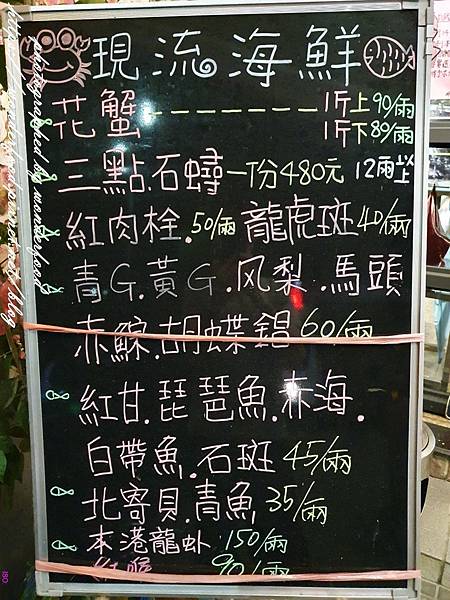 現流海鮮
花蟹------1斤上90/兩
1斤下80/兩
三點.石蟳一份480元 12兩
紅肉栓.50/兩 龍虎斑40/兩
青G.黃G.风梨.馬頭
赤鯮.胡蝶鯧60/兩
紅甘.琵琶魚.赤海.
白帶魚.石斑45/兩
北寄貝.青魚35/兩
本港龍虾 150/兩
90/
photographed by wonderfood